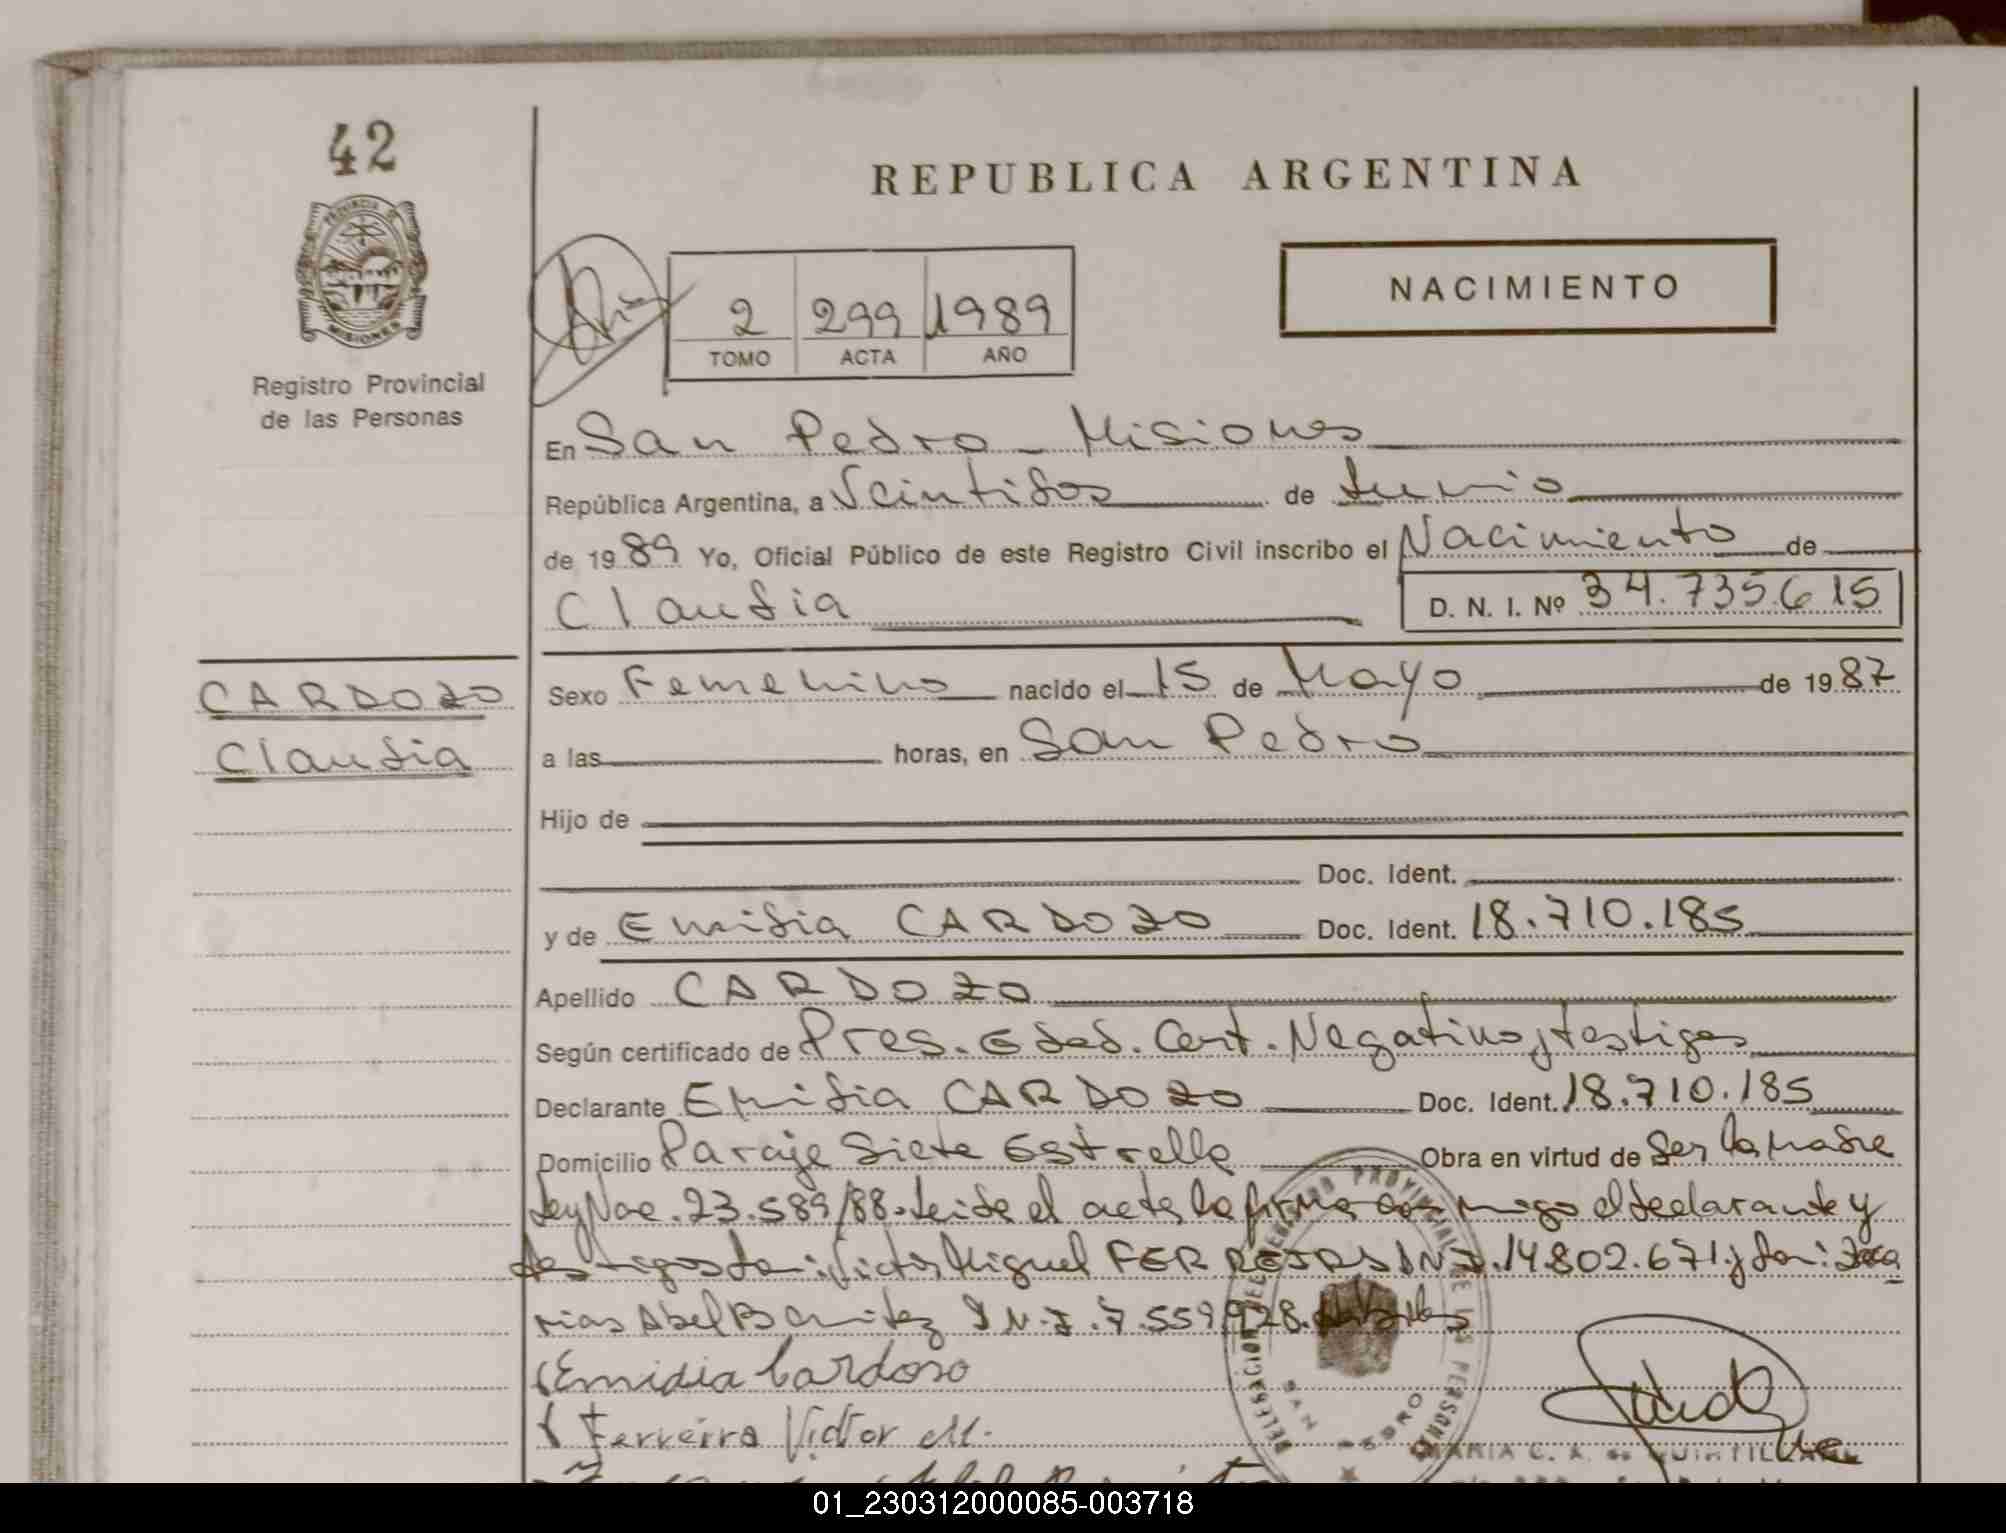 42
PROVINCIA DE
MISIONES
Registro Provincial
de las Personas
REPUBLICA ARGENTINA
NACIMIENTO
2 299 1989
TOMO ACTA AÑO
En San Pedro - Misiones
República Argentina, a Veintidos de Junio
de 1989 Yo, Oficial Público de este Registro Civil inscribo el Nacimiento de
Claudia D. N. I. Nº 34.735.615
CARDOZO
Claudia
Sexo Femenino nacido el 15 de Mayo de 1987
a las horas, en San Pedro
Hijo de
Doc. Ident.
y de Emidia CARDOZO Doc. Ident. 18.710.185
Apellido CARDOZO
Según certificado de Pres. Edad. Cert. Negativo y testigos
Declarante Emidia CARDOZO Doc. Ident. 18.710.185
Domicilio Paraje Siete Estrella Obra en virtud de Ser la madre
Ley Nac. 23.589/88. Leida el acta la firma conmigo el declarante y
testigos Don: Victor Miguel FERREIRA DNI. 14.802.671 y Don: Zaca
rias Abel Benitez DNI. 7.559.928.
Emidia Cardoso
Ferreira Victor M.
DELEGACION DEL REGISTRO PROVINCIAL DE LAS PERSONAS
SAN PEDRO
MARIA C. A. de QUINTILLAN
01_230312000085-003718